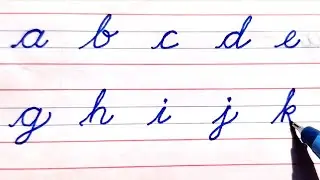 a b c d e
g h i j k